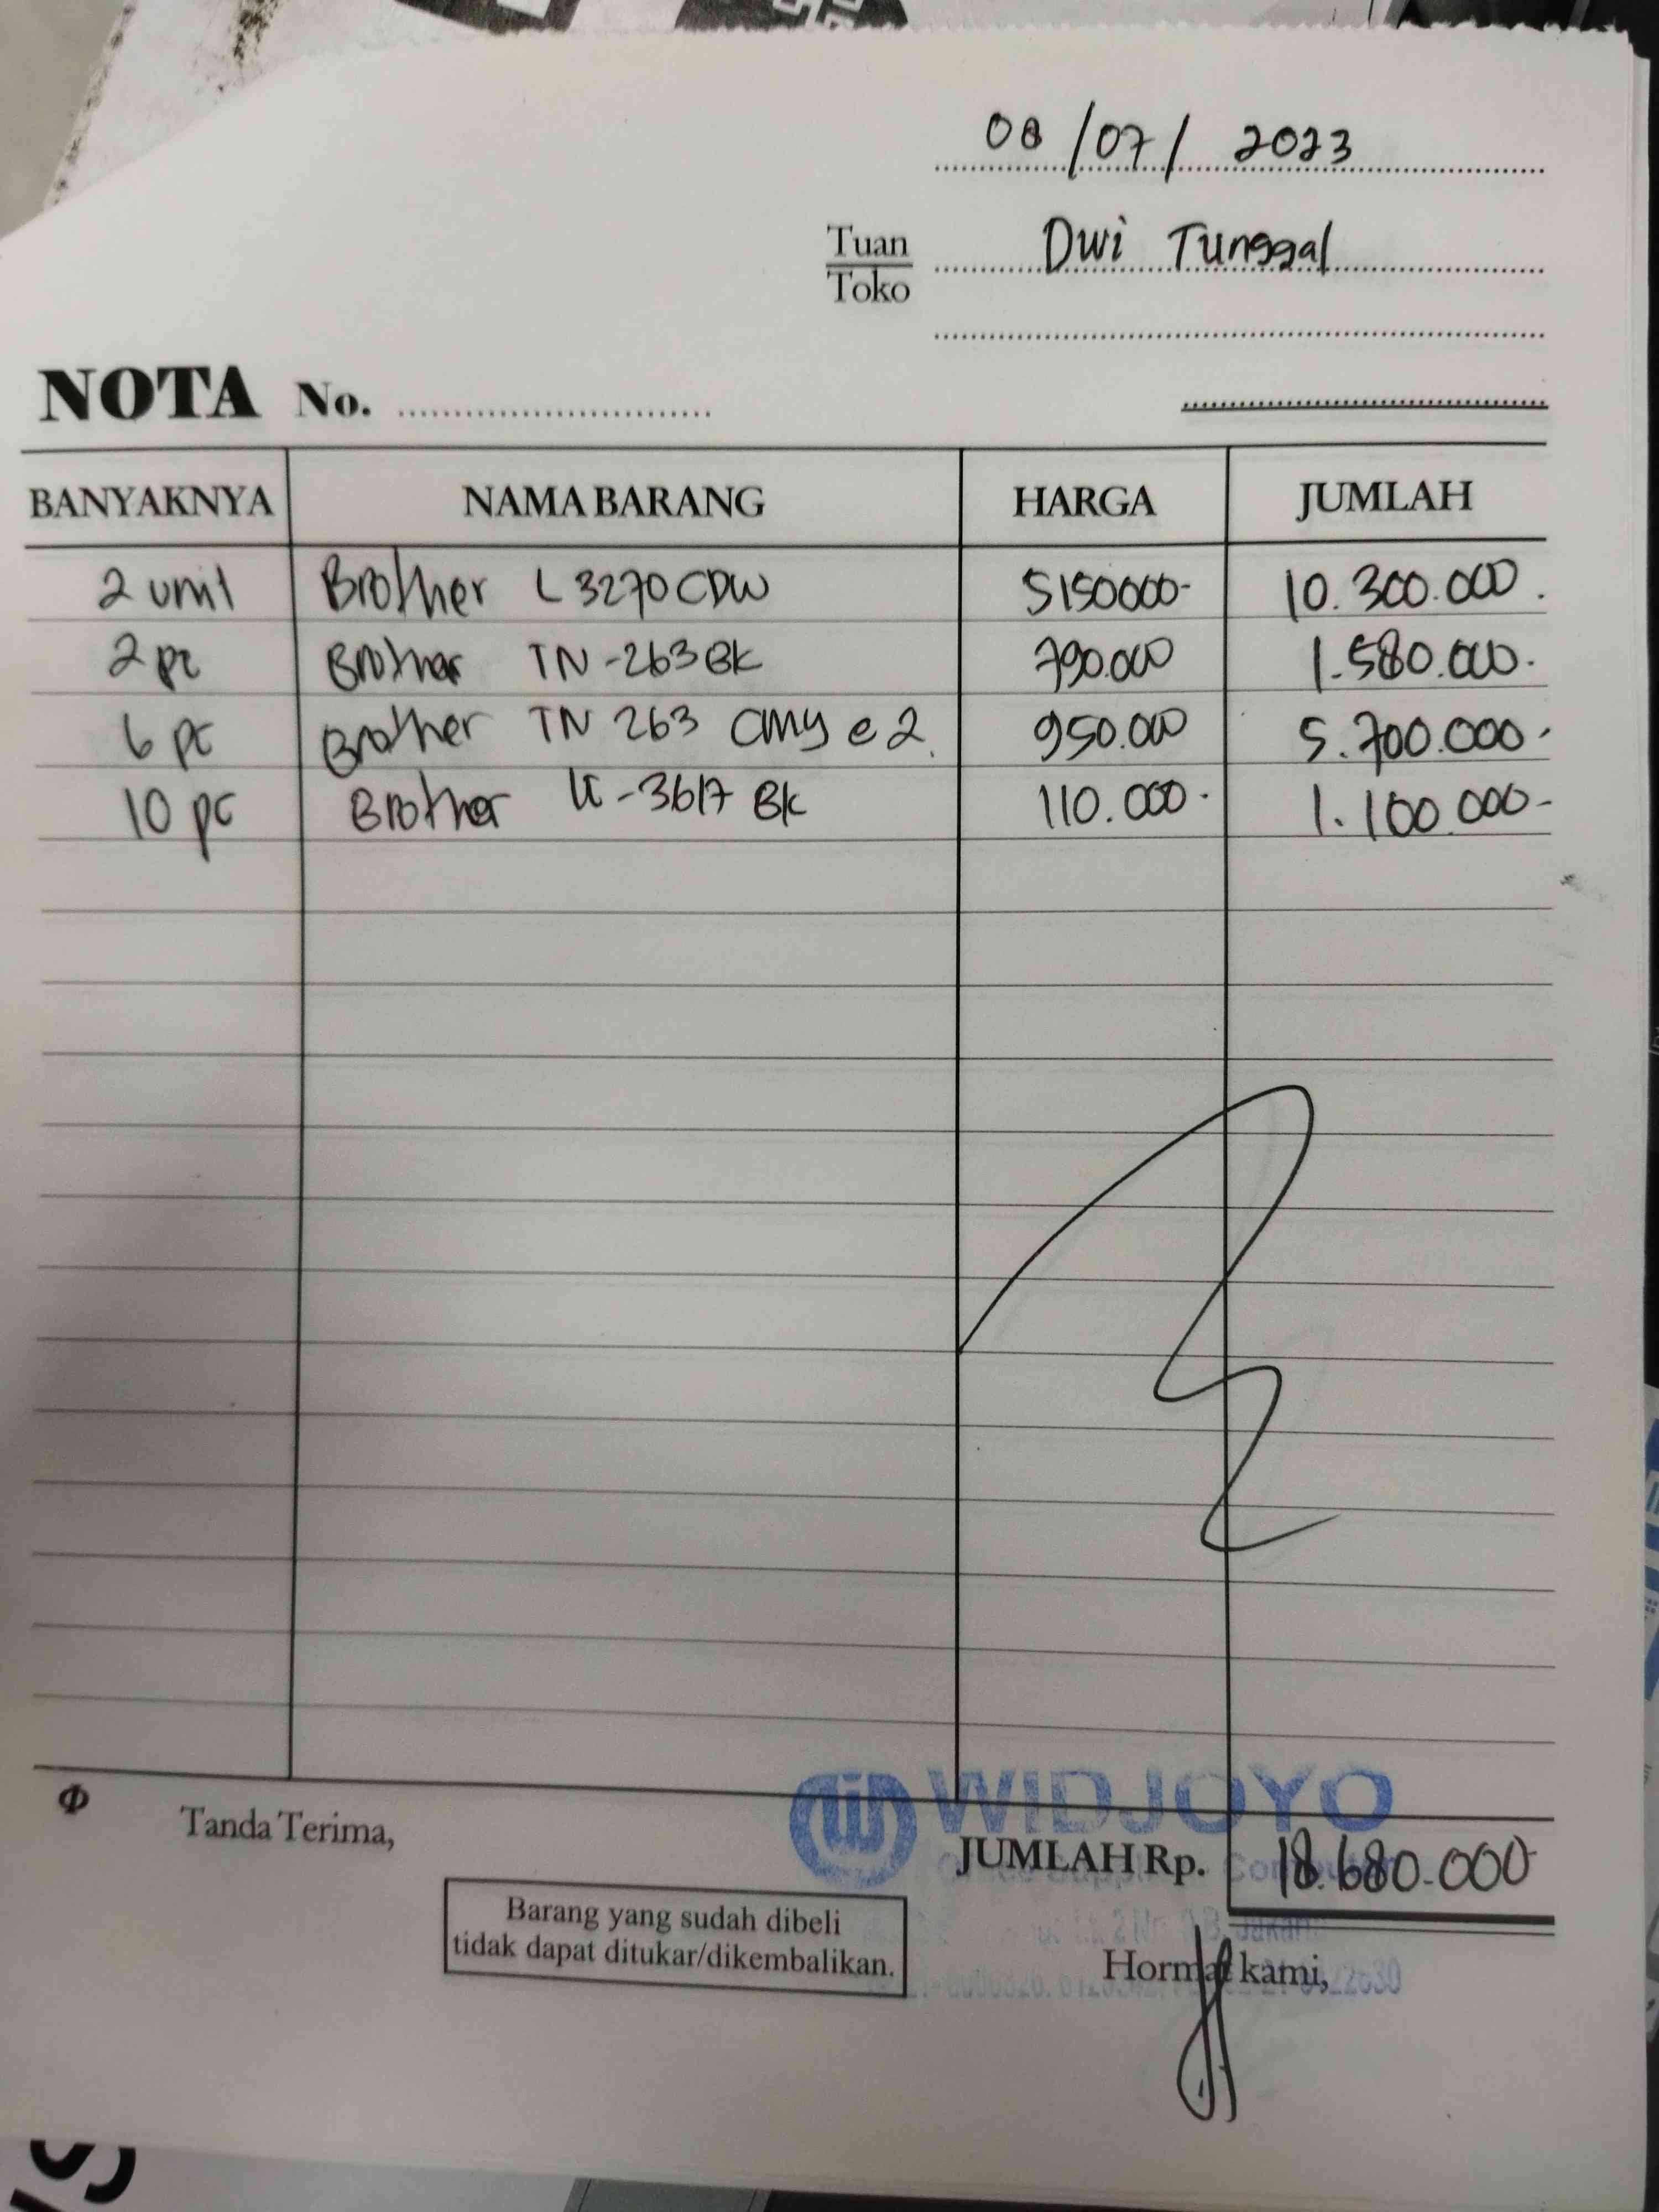 08/07/2023
Tuan Dwi Tunggal
Toko
NOTA No.
BANYAKNYA NAMA BARANG HARGA JUMLAH
2 unit Brother L3270CDW 5150000- 10.300.000.
2 pc Brother TN-263BK 790.000 1.580.000.
6 pc Brother TN 263 CMY @ 2. 950.000 5.700.000.
10 pc Brother LC-3617 BK 110.000. 1.100.000-
Tanda Terima,
WIDJOYO
JUMLAH Rp. 18.680.000
Barang yang sudah dibeli
tidak dapat ditukar/dikembalikan.
Hormat kami,